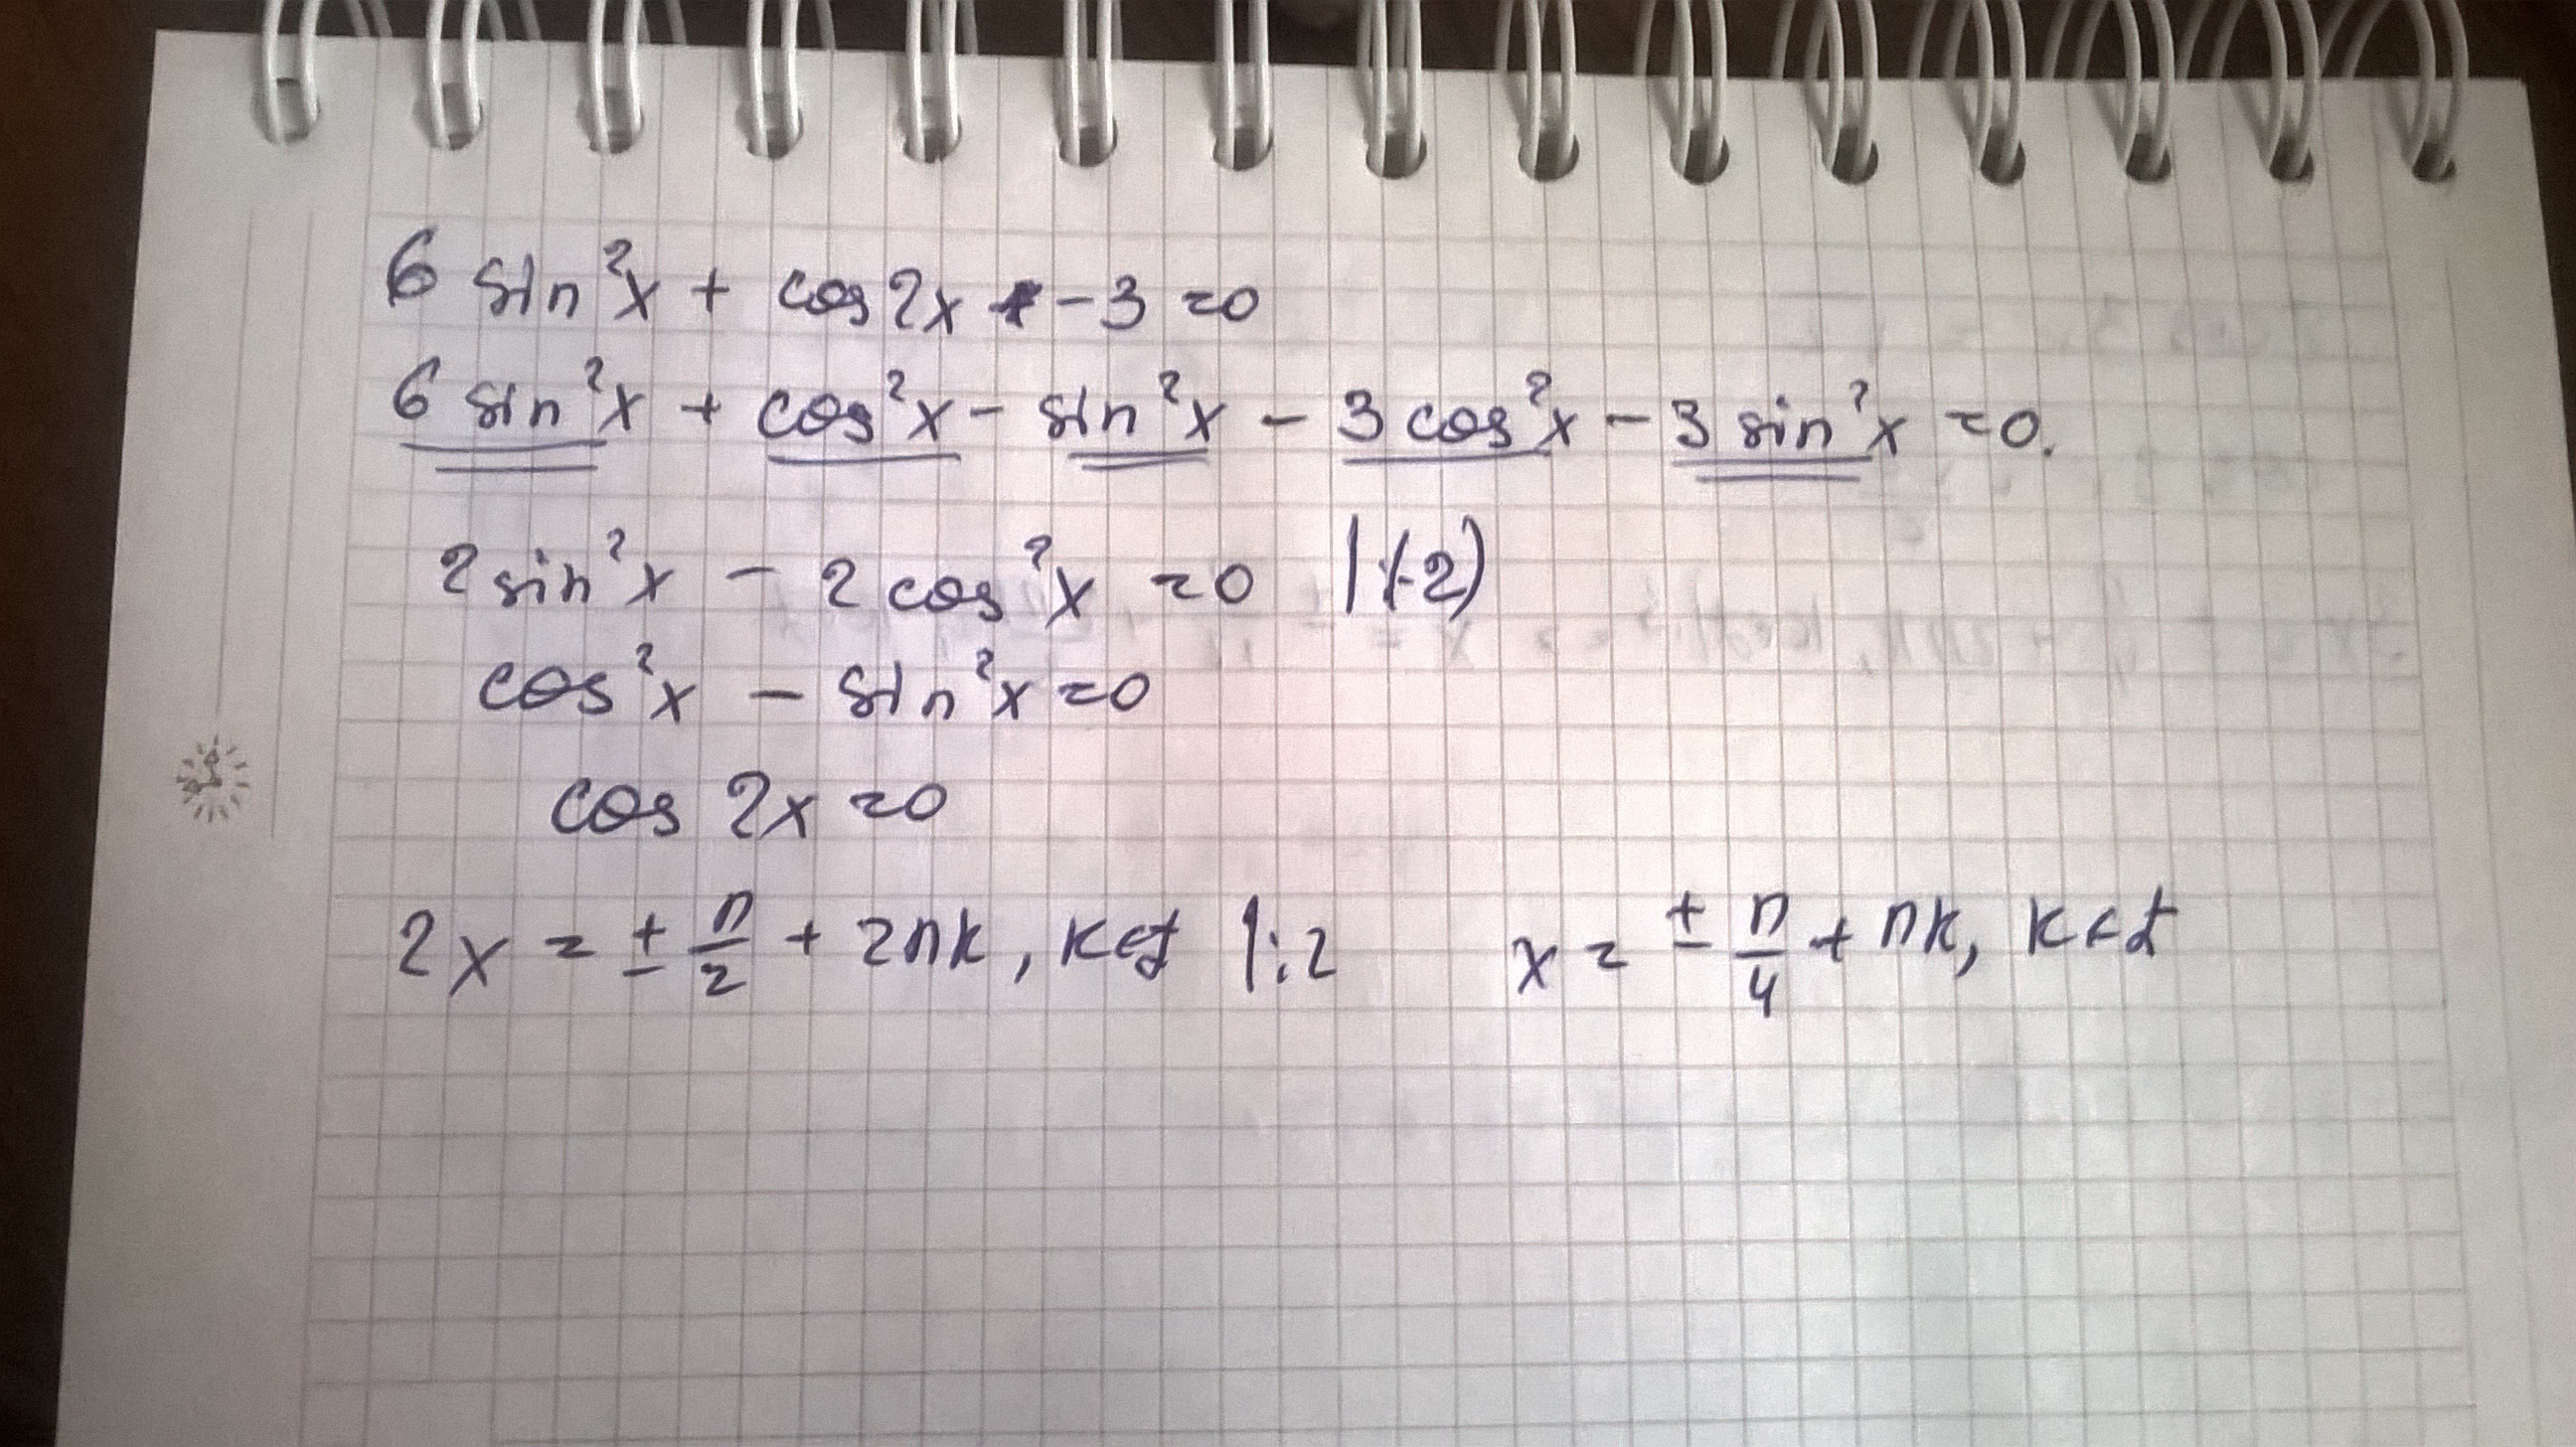 6 sin²x + cos 2x - 3 = 0
6 sin²x + cos²x - sin²x - 3 cos²x - 3 sin²x = 0.
2 sin²x - 2 cos²x = 0 |:(-2)
cos²x - sin²x = 0
cos 2x = 0
2x = ± π/2 + 2πk, k∈Z |:2 x = ± π/4 + πk, k∈Z